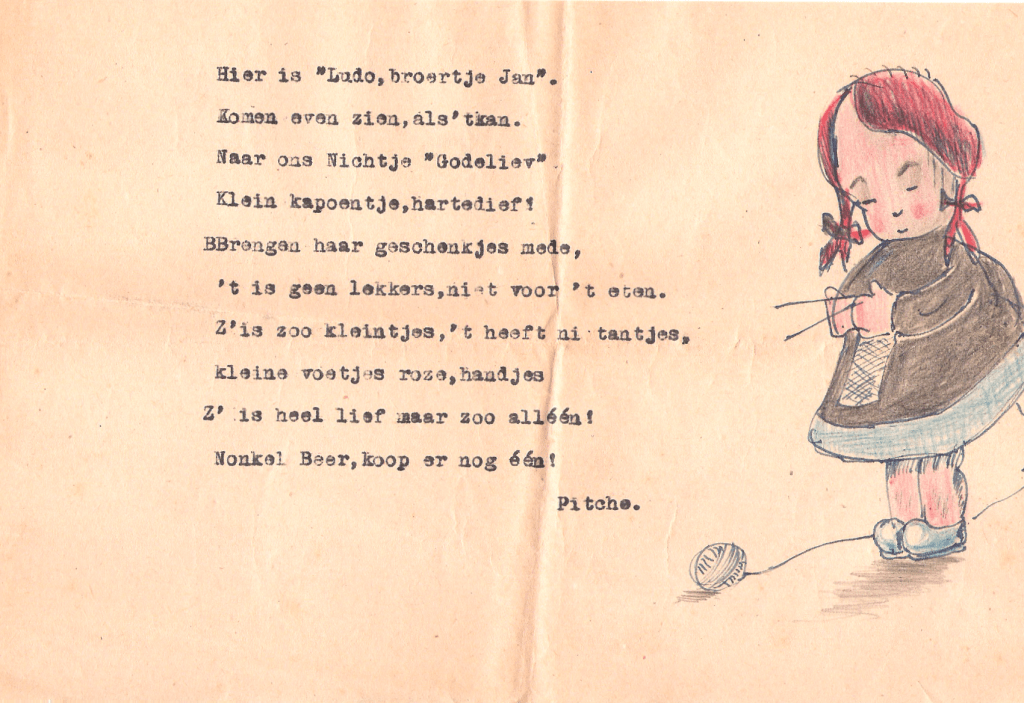 Hier is "Ludo,broertje Jan".
Komen even zien,als'tkan.
Naar ons Nichtje "Godeliev".
Klein kapoentje,hartedief!
BBrengen haar geschenkjes mede,
't is geen lekkers,niet voor 't eten.
Z'is zoo kleintjes,'t heeft ni tantjes,
kleine voetjes roze,handjes
Z' is heel lief maar zoo alléén!
Nonkel Beer,koop er nog één!
Pitche.